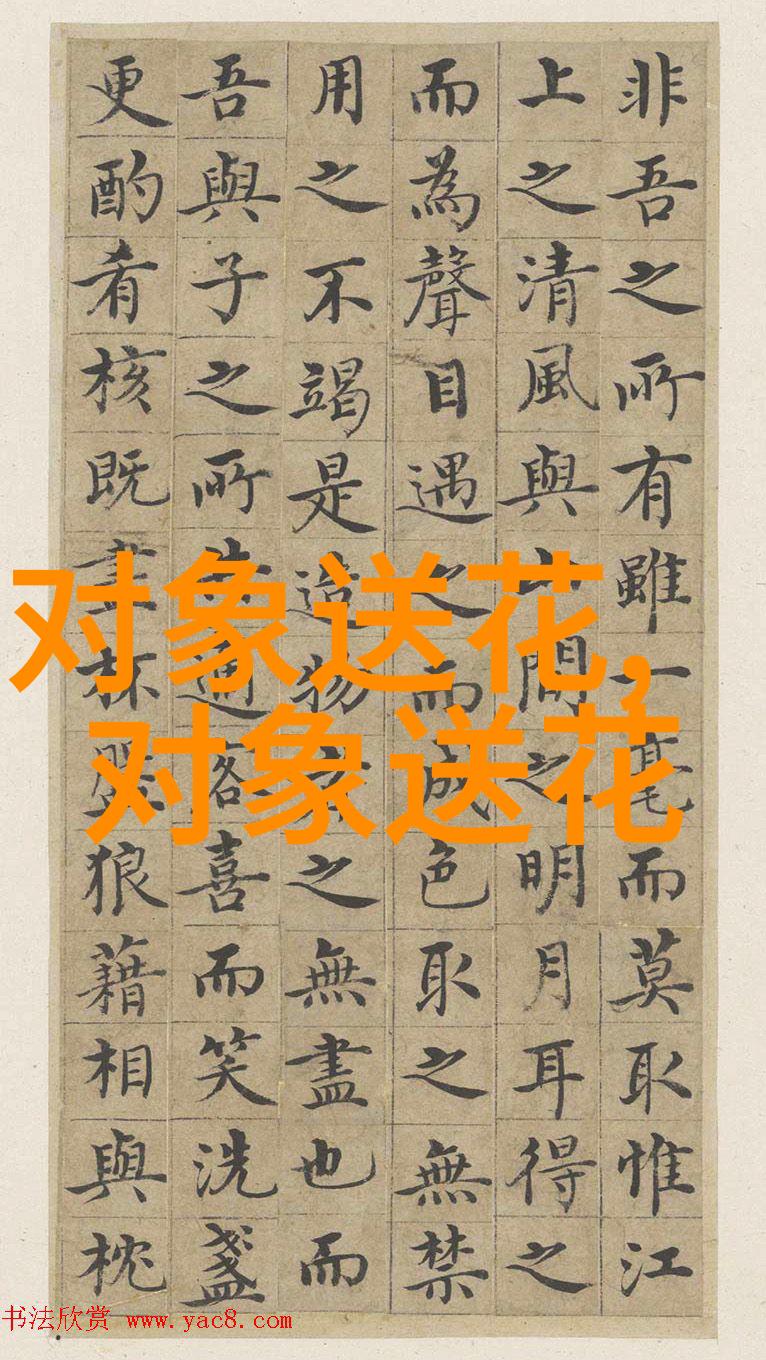 非吾之所有雖一毫而莫取惟江
上之清風與間之明月耳得之
而為聲目遇之而成色取之無禁
用之不竭是造物之無盡也而
吾與子之所適客喜而笑洗盞
更酌肴核既盡杯盤狼藉相與枕
对象送花,
对象送花
书法欣赏 www.yac8.com